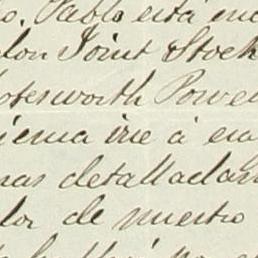 o. Pablo está en
don Joint Stock
otesworth Powel
iema iré á en
mas detalladam
dor de nuestro